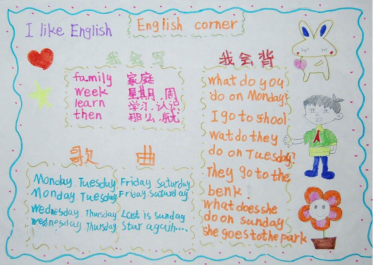 I like English
English corner
我会写
family 家庭
week 星期.周
learn 学习.认识
then 那么.就
我会背
what do you
do on Monday?
I go to school
wat do they
do on Tuesday?
They go to the
benk!
what does she
do on sunday
she goes to the park
歌 曲
Monday Tuesday Friday Saturday
Monday Tuesday Friday Saturday
Wednesday Thursday Last is sunday
Wednesday Thursday Star again......